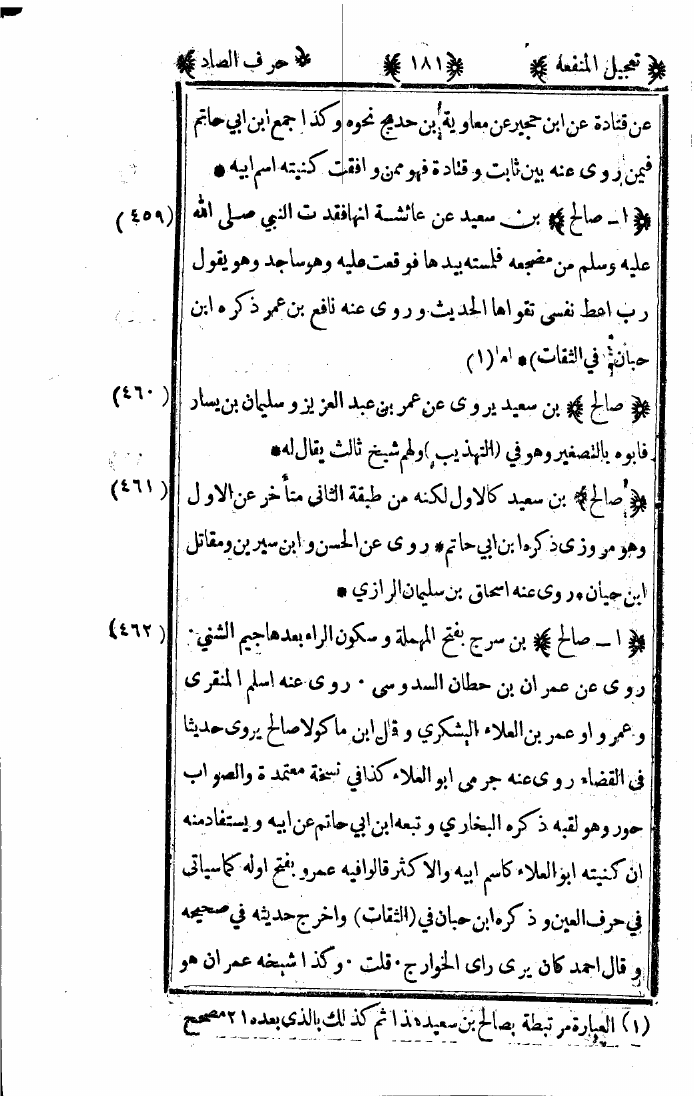 ﴿ تعجيل المنفعة ﴾ ﴿ ١٨١ ﴾ ﴿ حرف الصاد ﴾
عن قتادة عن ابن حجير عن معاوية بن حديج نحوه وكذا جمع ابن ابي حاتم
فيمن روى عنه بين ثابت و قتادة فهو ممن وافقت كنيته اسم ابيه *
﴿ ا ــ صالح ﴾ بن سعيد عن عائشة انها فقدت النبي صلى الله (٤٥٩)
عليه وسلم من مضجعه فلمسته بيدها فوقعت عليه وهو ساجد وهو يقول
رب اعط نفسى تقواها الحديث وروى عنه نافع بن عمر ذكره ابن
حبان في الثقات) * (١)
﴿ صالح ﴾ بن سعيد يروى عن عمر بن عبد العزيز و سليمان بن يسار (٤٦٠)
فابوه بالتصغير وهو في (التهذيب) ولهم شيخ ثالث يقال له *
﴿ صالح ﴾ بن سعيد كالاول لكنه من طبقة الثانى متأخر عن الاول (٤٦١)
وهو مروزى ذكره ابن ابي حاتم * روى عن الحسن و ابن سيرين ومقاتل
ابن حيان * روى عنه اسحاق بن سليمان الرازي *
﴿ ا ــ صالح ﴾ بن سرج بفتح المهملة و سكون الراء بعدها جيم الشني ٠ (٤٦٢)
روى عن عمران بن حطان السدوسى ٠ روى عنه اسلم المنقرى
و عمرو او عمر بن العلاء اليشكري و قال ابن ماكولا صالح يروى حديثا
فى القضاء روى عنه جرمى ابو العلاء كذا في نسخة معتمدة والصواب
حور وهو لقبه ذكره البخاري و تبعه ابن ابي حاتم عن ابيه و يستفاد منه
ان كنيته ابو العلاء كاسم ابيه والاكثر قالوا فيه عمرو بفتح اوله كما سياتى
في حرف العين و ذكره ابن حبان في (الثقات) واخرج حديثه في صحيحه
و قال احمد كان يرى راى الخوارج ٠ قلت ٠ وكذا شيخه عمران هو
(١) العبارة مرتبطة بصالح بن سعيد هذا ثم كذلك بالذى بعده ١٢ مصحح